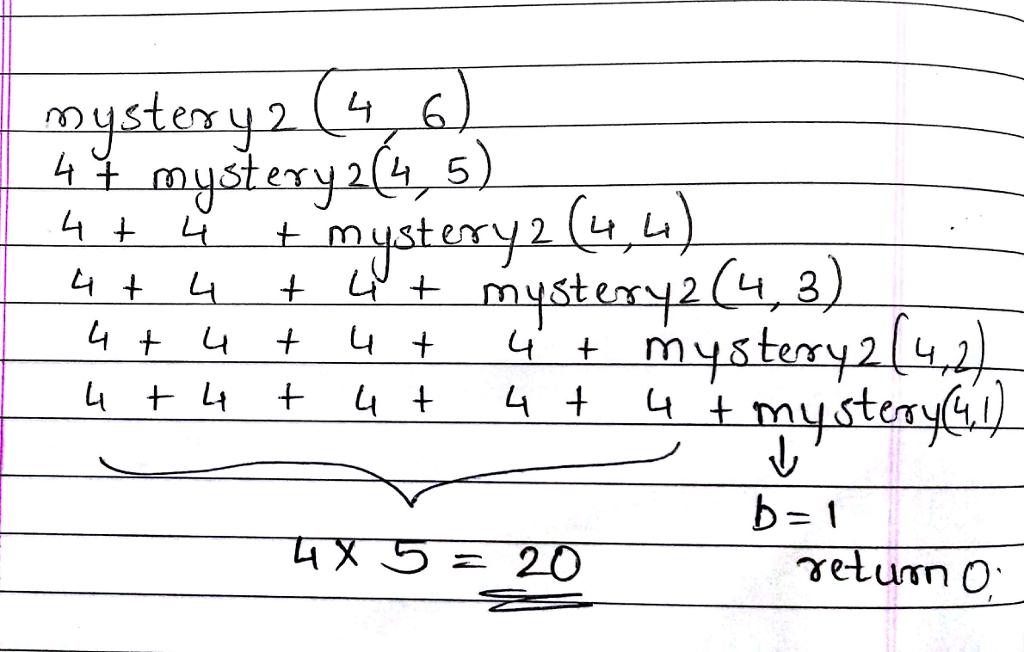 mystery2 (4, 6)
4 + mystery2(4, 5)
4 + 4 + mystery2 (4,4)
4 + 4 + 4 + mystery2(4,3)
4 + 4 + 4 + 4 + mystery2(4,2)
4 + 4 + 4 + 4 + 4 + mystery(4,1)
↓
b=1
4 x 5 = 20
return 0;